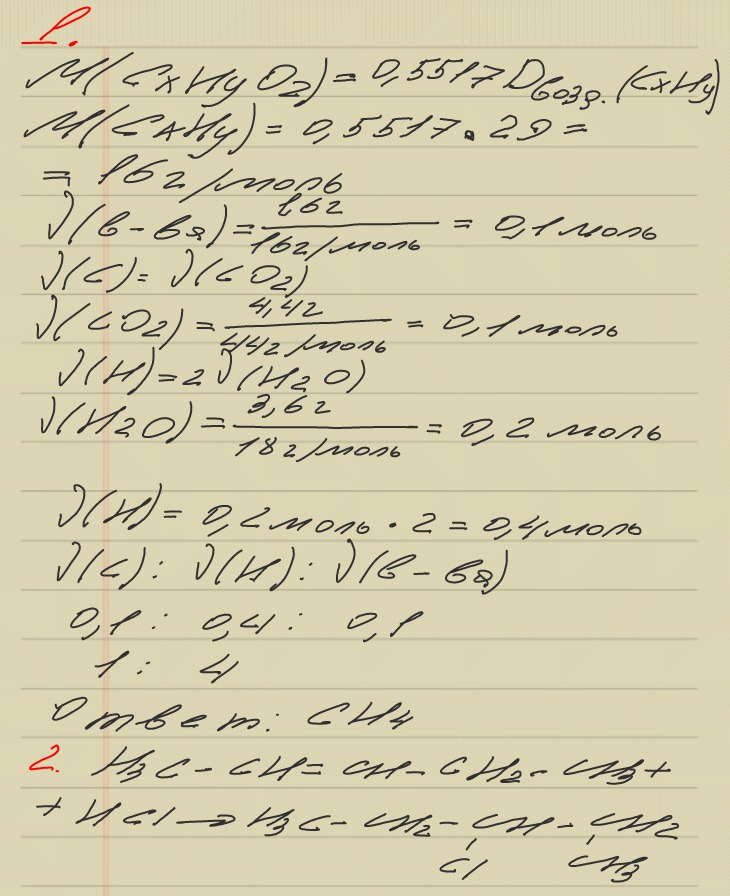 1.
M(CxHyO2) = 0,5517 Dвозд. (CxHy)
M(CxHy) = 0,5517 • 29 =
= 16 г/моль
ν(в-ва) = 16г / 16г/моль = 0,1 моль
ν(C) = ν(CO2)
ν(CO2) = 4,4г / 44г/моль = 0,1 моль
ν(H) = 2 ν(H2O)
ν(H2O) = 3,6г / 18г/моль = 0,2 моль
ν(H) = 0,2 моль • 2 = 0,4 моль
ν(C) : ν(H) : ν(в-ва)
0,1 : 0,4 : 0,1
1 : 4
Ответ: CH4
2. H3C - CH = CH - CH2 - CH3 +
+ HCl → H3C - CH2 - CH - CH2
Cl CH3